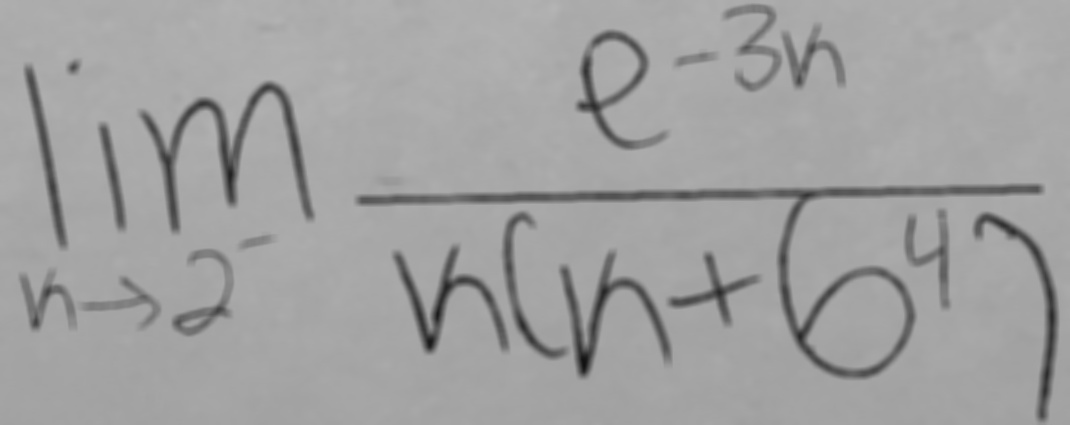 \lim_{n \to 2^-} \frac{e^{-3n}}{n(n+6^4)}